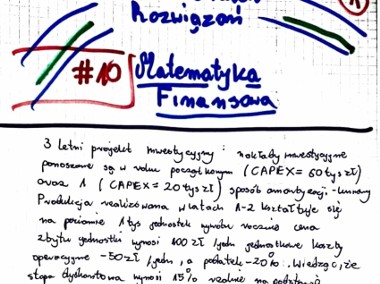 Rozwiązań
#10 Matematyka
Finansowa
3 letni projekt inwestycyjny: nakłady inwestycyjne
ponoszone są w roku początkowym (CAPEX = 60 tys zł)
oraz 1 (CAPEX = 20 tys zł) sposób amortyzacji - liniowy
Produkcja realizowana w latach 1-2 kształtuje się
na poziomie 1 tys jednostek wyrobu rocznie cena
zbytu jednostki wynosi 100 zł/jedn jednostkowe koszty
operacyjne - 50 zł/jedn, a podatek - 20%. Wiedząc, że
stopa dyskontowa wynosi 15%